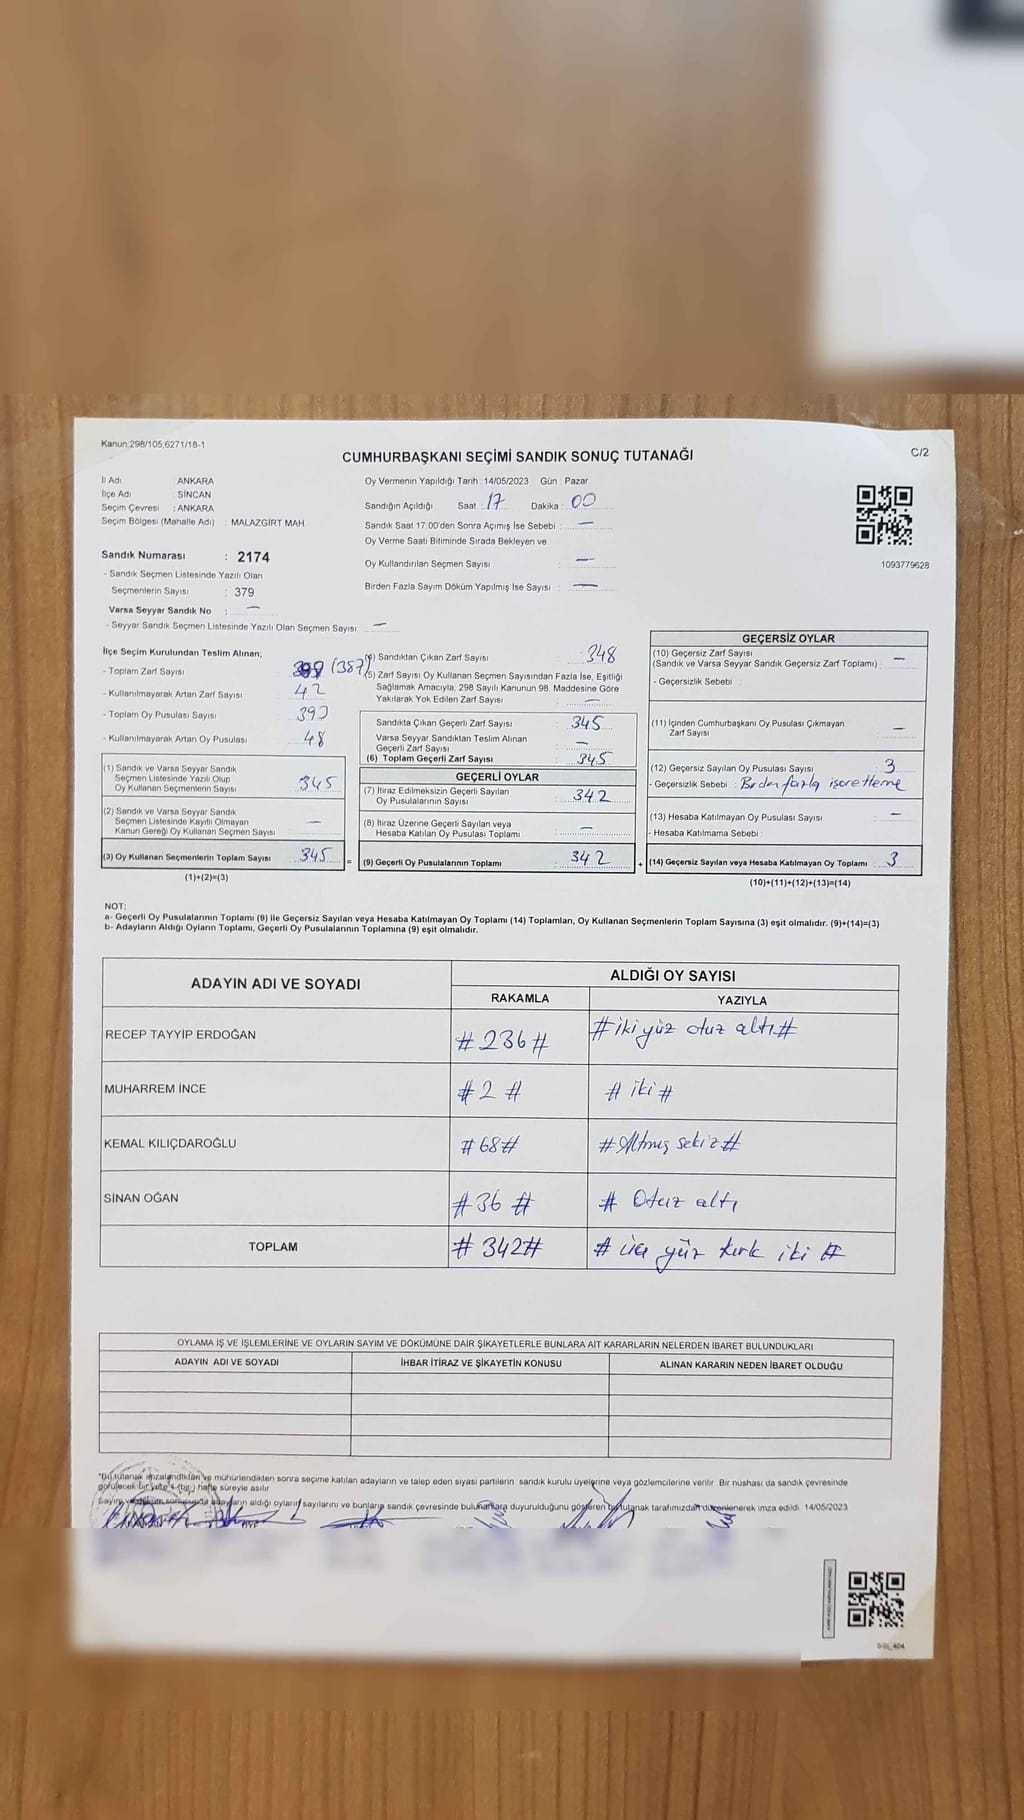 Kanun:298/105,6271/18-1
C/2
CUMHURBAŞKANI SEÇİMİ SANDIK SONUÇ TUTANAĞI
İl Adı ANKARA
İlçe Adı : SİNCAN
Seçim Çevresi : ANKARA
Seçim Bölgesi (Mahalle Adı) : MALAZGİRT MAH.
Sandık Numarası : 2174
- Sandık Seçmen Listesinde Yazılı Olan
Seçmenlerin Sayısı : 379
Varsa Seyyar Sandık No : —
- Seyyar Sandık Seçmen Listesinde Yazılı Olan Seçmen Sayısı: —
Oy Vermenin Yapıldığı Tarih : 14/05/2023 Gün : Pazar
Sandığın Açıldığı Saat : 17 Dakika : 00
Sandık Saat 17:00'den Sonra Açımış İse Sebebi : —
Oy Verme Saati Bitiminde Sırada Bekleyen ve
Oy Kullandırılan Seçmen Sayısı : —
Birden Fazla Sayım Döküm Yapılmış İse Sayısı : —
1093779628
İlçe Seçim Kurulundan Teslim Alınan;
- Toplam Zarf Sayısı (387)
- Kullanılmayarak Artan Zarf Sayısı 42
- Toplam Oy Pusulası Sayısı 393
- Kullanılmayarak Artan Oy Pusulası 48
(1) Sandık ve Varsa Seyyar Sandık
Seçmen Listesinde Yazılı Olup
Oy Kullanan Seçmenlerin Sayısı : 345
(2) Sandık ve Varsa Seyyar Sandık
Seçmen Listesinde Kayıtlı Olmayan
Kanun Gereği Oy Kullanan Seçmen Sayısı —
(3) Oy Kullanan Seçmenlerin Toplam Sayısı : 345 =
(1)+(2)=(3)
(4) Sandıktan Çıkan Zarf Sayısı : 348
(5) Zarf Sayısı Oy Kullanan Seçmen Sayısından Fazla İse, Eşitliği
Sağlamak Amacıyla, 298 Sayılı Kanunun 98. Maddesine Göre
Yakılarak Yok Edilen Zarf Sayısı : —
Sandıkta Çıkan Geçerli Zarf Sayısı : 345
Varsa Seyyar Sandıktan Teslim Alınan
Geçerli Zarf Sayısı : —
(6) Toplam Geçerli Zarf Sayısı : 345
GEÇERLİ OYLAR
(7) İtiraz Edilmeksizin Geçerli Sayılan
Oy Pusulalarının Sayısı : 342
(8) İtiraz Üzerine Geçerli Sayılan veya
Hesaba Katılan Oy Pusulası Toplamı : —
(9) Geçerli Oy Pusulalarının Toplamı : 342 +
GEÇERSİZ OYLAR
(10) Geçersiz Zarf Sayısı
(Sandık ve Varsa Seyyar Sandık Geçersiz Zarf Toplamı) : —
- Geçersizlik Sebebi :
(11) İçinden Cumhurbaşkanı Oy Pusulası Çıkmayan
Zarf Sayısı : —
(12) Geçersiz Sayılan Oy Pusulası Sayısı : 3
- Geçersizlik Sebebi : Birden fazla işaretleme
(13) Hesaba Katılmayan Oy Pusulası Sayısı : —
- Hesaba Katılmama Sebebi :
(14) Geçersiz Sayılan veya Hesaba Katılmayan Oy Toplamı : 3
(10)+(11)+(12)+(13)=(14)
NOT:
a- Geçerli Oy Pusulalarının Toplamı (9) ile Geçersiz Sayılan veya Hesaba Katılmayan Oy Toplamı (14) Toplamları, Oy Kullanan Seçmenlerin Toplam Sayısına (3) eşit olmalıdır. (9)+(14)=(3)
b- Adayların Aldığı Oyların Toplamı, Geçerli Oy Pusulalarının Toplamına (9) eşit olmalıdır.
ADAYIN ADI VE SOYADI ALDIĞI OY SAYISI
RAKAMLA YAZIYLA
RECEP TAYYİP ERDOĞAN #236# #iki yüz otuz altı#
MUHARREM İNCE #2# #iki#
KEMAL KILIÇDAROĞLU #68# #Altmış sekiz#
SİNAN OĞAN #36# # Otuz altı
TOPLAM #342# # üç yüz kırk iki #
OYLAMA İŞ VE İŞLEMLERİNE VE OYLARIN SAYIM VE DÖKÜMÜNE DAİR ŞİKAYETLERLE BUNLARA AİT KARARLARIN NELERDEN İBARET BULUNDUKLARI
ADAYIN ADI VE SOYADI İHBAR İTİRAZ VE ŞİKAYETİN KONUSU ALINAN KARARIN NEDEN İBARET OLDUĞU
*Bu tutanak imzalandıktan ve mühürlendikten sonra seçime katılan adayların ve talep eden siyasi partilerin sandık kurulu üyelerine veya gözlemcilerine verilir. Bir nüshası da sandık çevresinde
görülecek bir yere 1 (bir) hafta süreyle asılır.
Sayım ve döküm sonucunda adayların aldığı oyların sayılarını ve bunların sandık çevresinde bulunanlara duyurulduğunu gösteren bu tutanak tarafımızdan düzenlenerek imza edildi. 14/05/2023